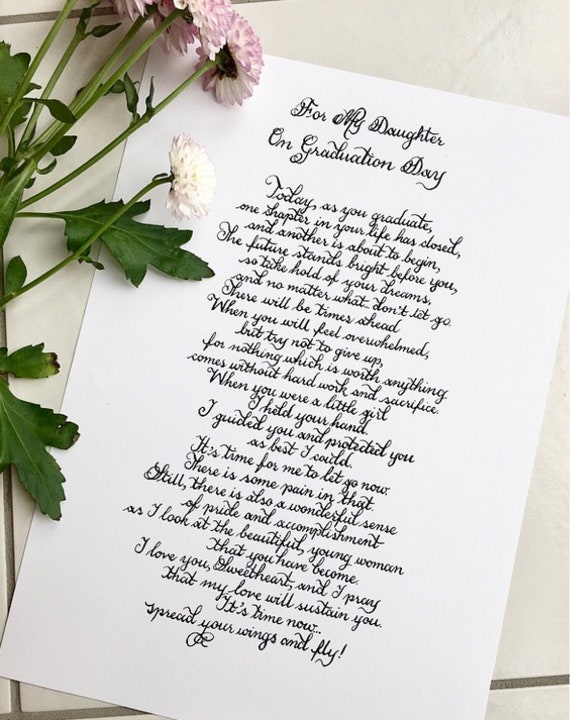 For My Daughter
On Graduation Day
Today, as you graduate,
one chapter in your life has closed,
and another is about to begin,
The future stands bright before you,
so take hold of your dreams,
and no matter what don't let go.
There will be times ahead
When you will feel overwhelmed,
but try not to give up,
for nothing which is worth anything
comes without hard work and sacrifice.
When you were a little girl
I held your hand.
I guided you and protected you
as best I could.
It's time for me to let go now.
There is some pain in that.
Still, there is also a wonderful sense
of pride and accomplishment
as I look at the beautiful, young woman
that you have become.
I love you, Sweetheart, and I pray
that my love will sustain you.
It's time now...
spread your wings and fly!